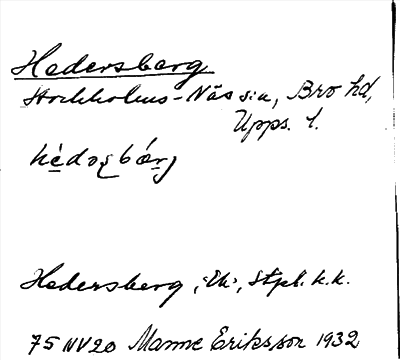 Hedersberg
Stockholms-Näs sn, Bro hd,
Upps. l.
Hedersberg, Eh, Stpl. k.k.
75 NV20 Manne Eriksson 1932